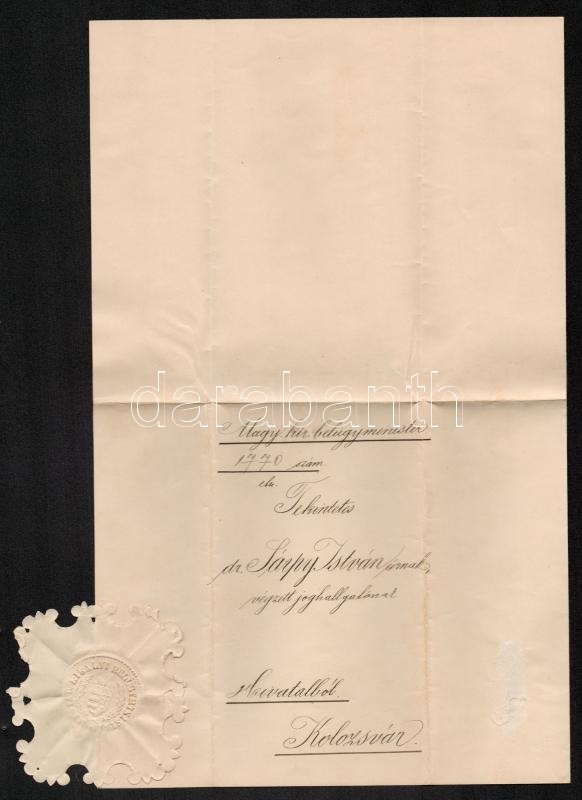 darabanth
Magy. kir. belügyminister
1770 szám
eln.
Tekintetes
dr. Sárpy István úrnak,
végzett joghallgatónak
Hivatalból.
Kolozsvár.